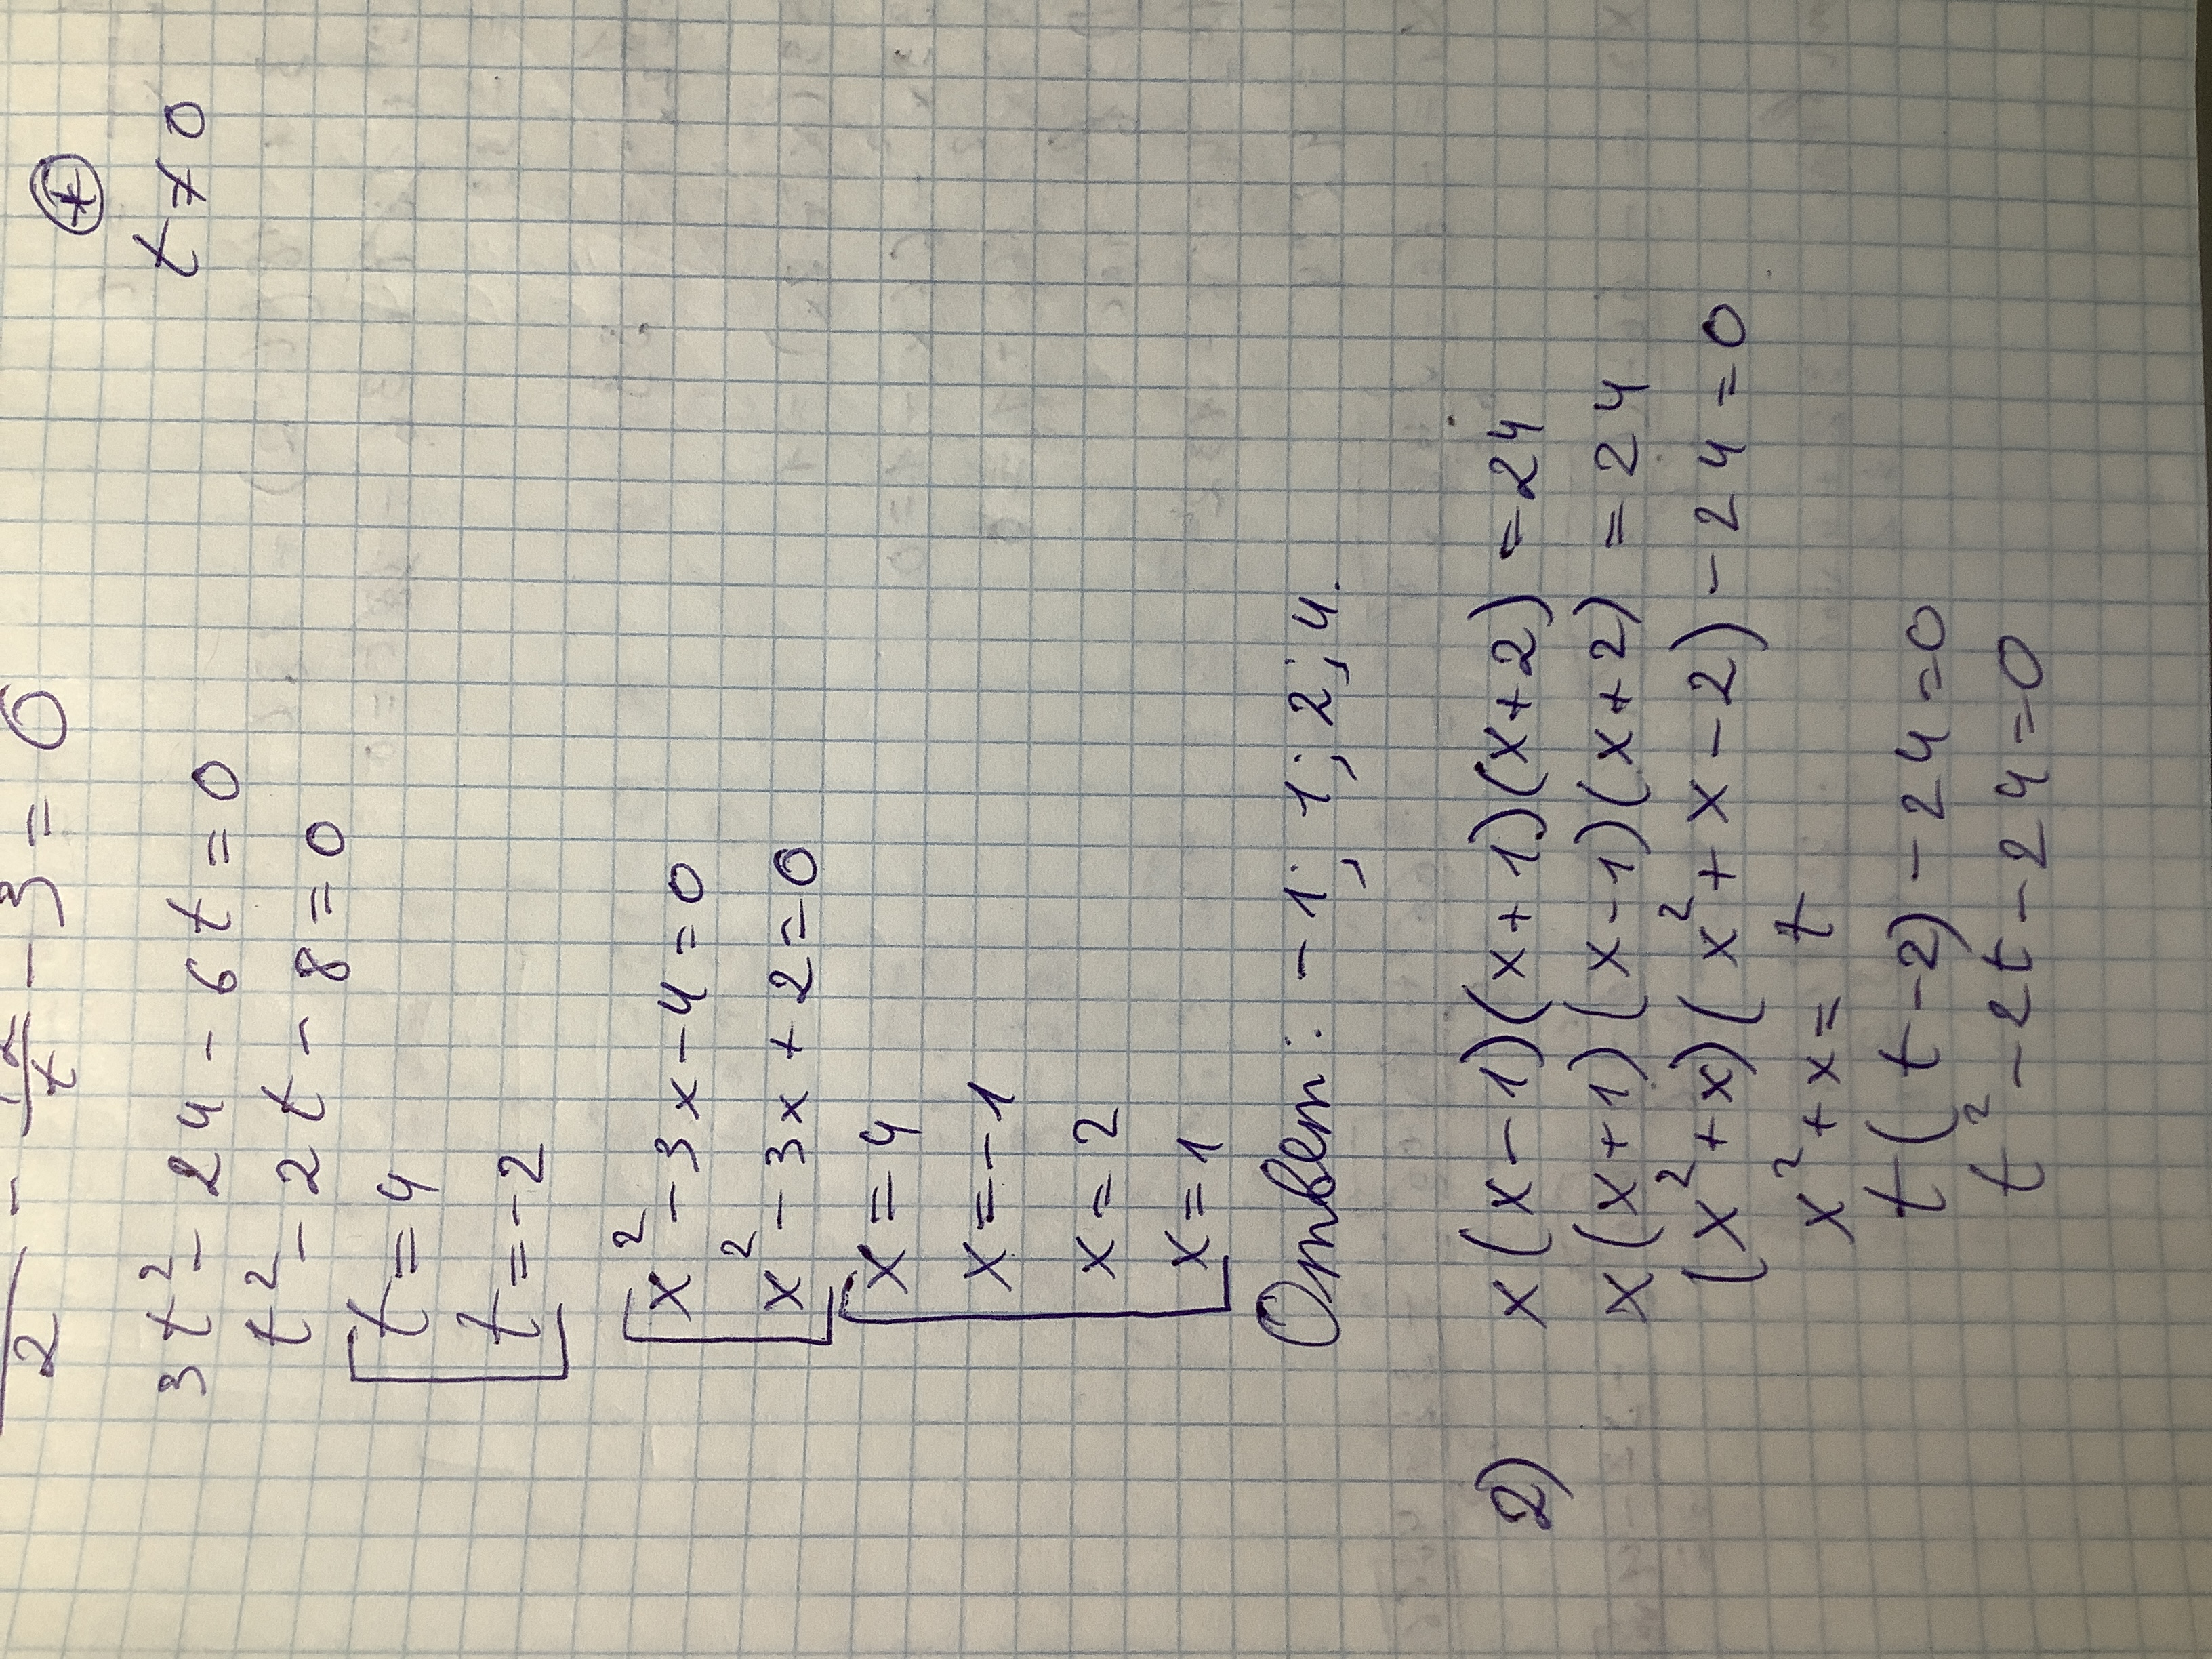 2 - t - 3 = 0
*
t ≠ 0
3t² - 24 - 6t = 0
t² - 2t - 8 = 0
t = 4
t = -2
x² - 3x - 4 = 0
x² - 3x + 2 = 0
x = 4
x = -1
x = 2
x = 1
Ответ: -1; 1; 2; 4.
2) x(x-1)(x+1)(x+2) = 24
x(x+1)(x-1)(x+2) = 24
(x²+x)(x²+x-2) - 24 = 0
x²+x = t
t(t-2) - 24 = 0
t² - 2t - 24 = 0